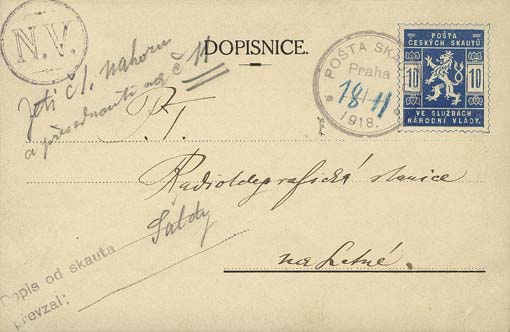 N.V.
DOPISNICE.
POŠTA SKAUTŮ
Praha
18 11
1918.
POŠTA
ČESKÝCH SKAUTŮ
10 10
VE SLUŽBÁCH
NÁRODNÍ VLÁDY.
Jeti č 1. nahoru
a přesednouti na č 11
P. T.
Radiotelegrafická stanice
na Letné.
Dopis od skauta
převzal: